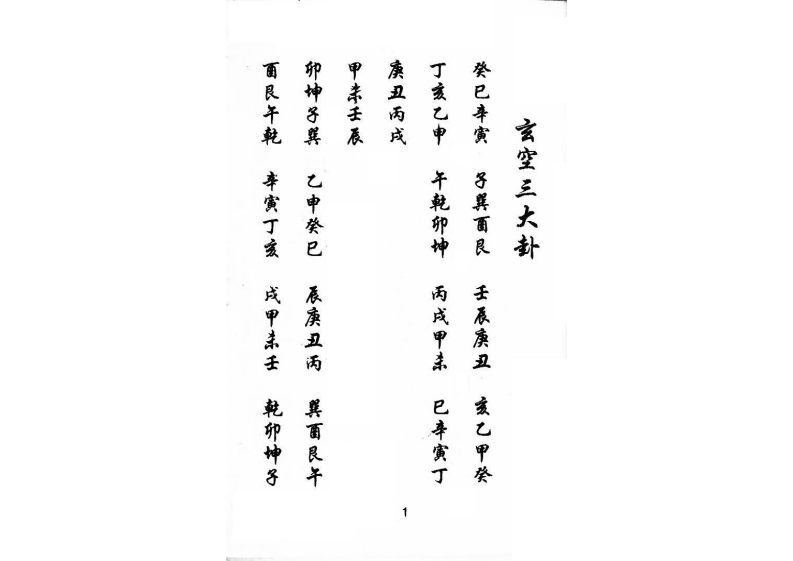 玄空三大卦
癸巳辛寅 子巽酉艮 壬辰庚丑 亥乙甲癸
丁亥乙申 午乾卯坤 丙戌甲未 巳辛寅丁
庚丑丙戌
甲未壬辰
卯坤子巽 乙申癸巳 辰庚丑丙 巽酉艮午
酉艮午乾 辛寅丁亥 戌甲未壬 乾卯坤子
1